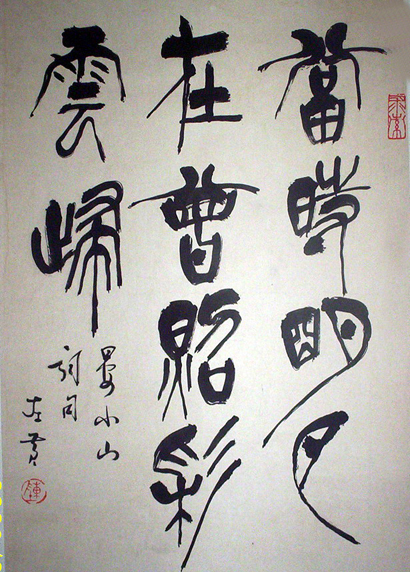 當時明月
在曾照彩
雲歸
晏小山
詞句